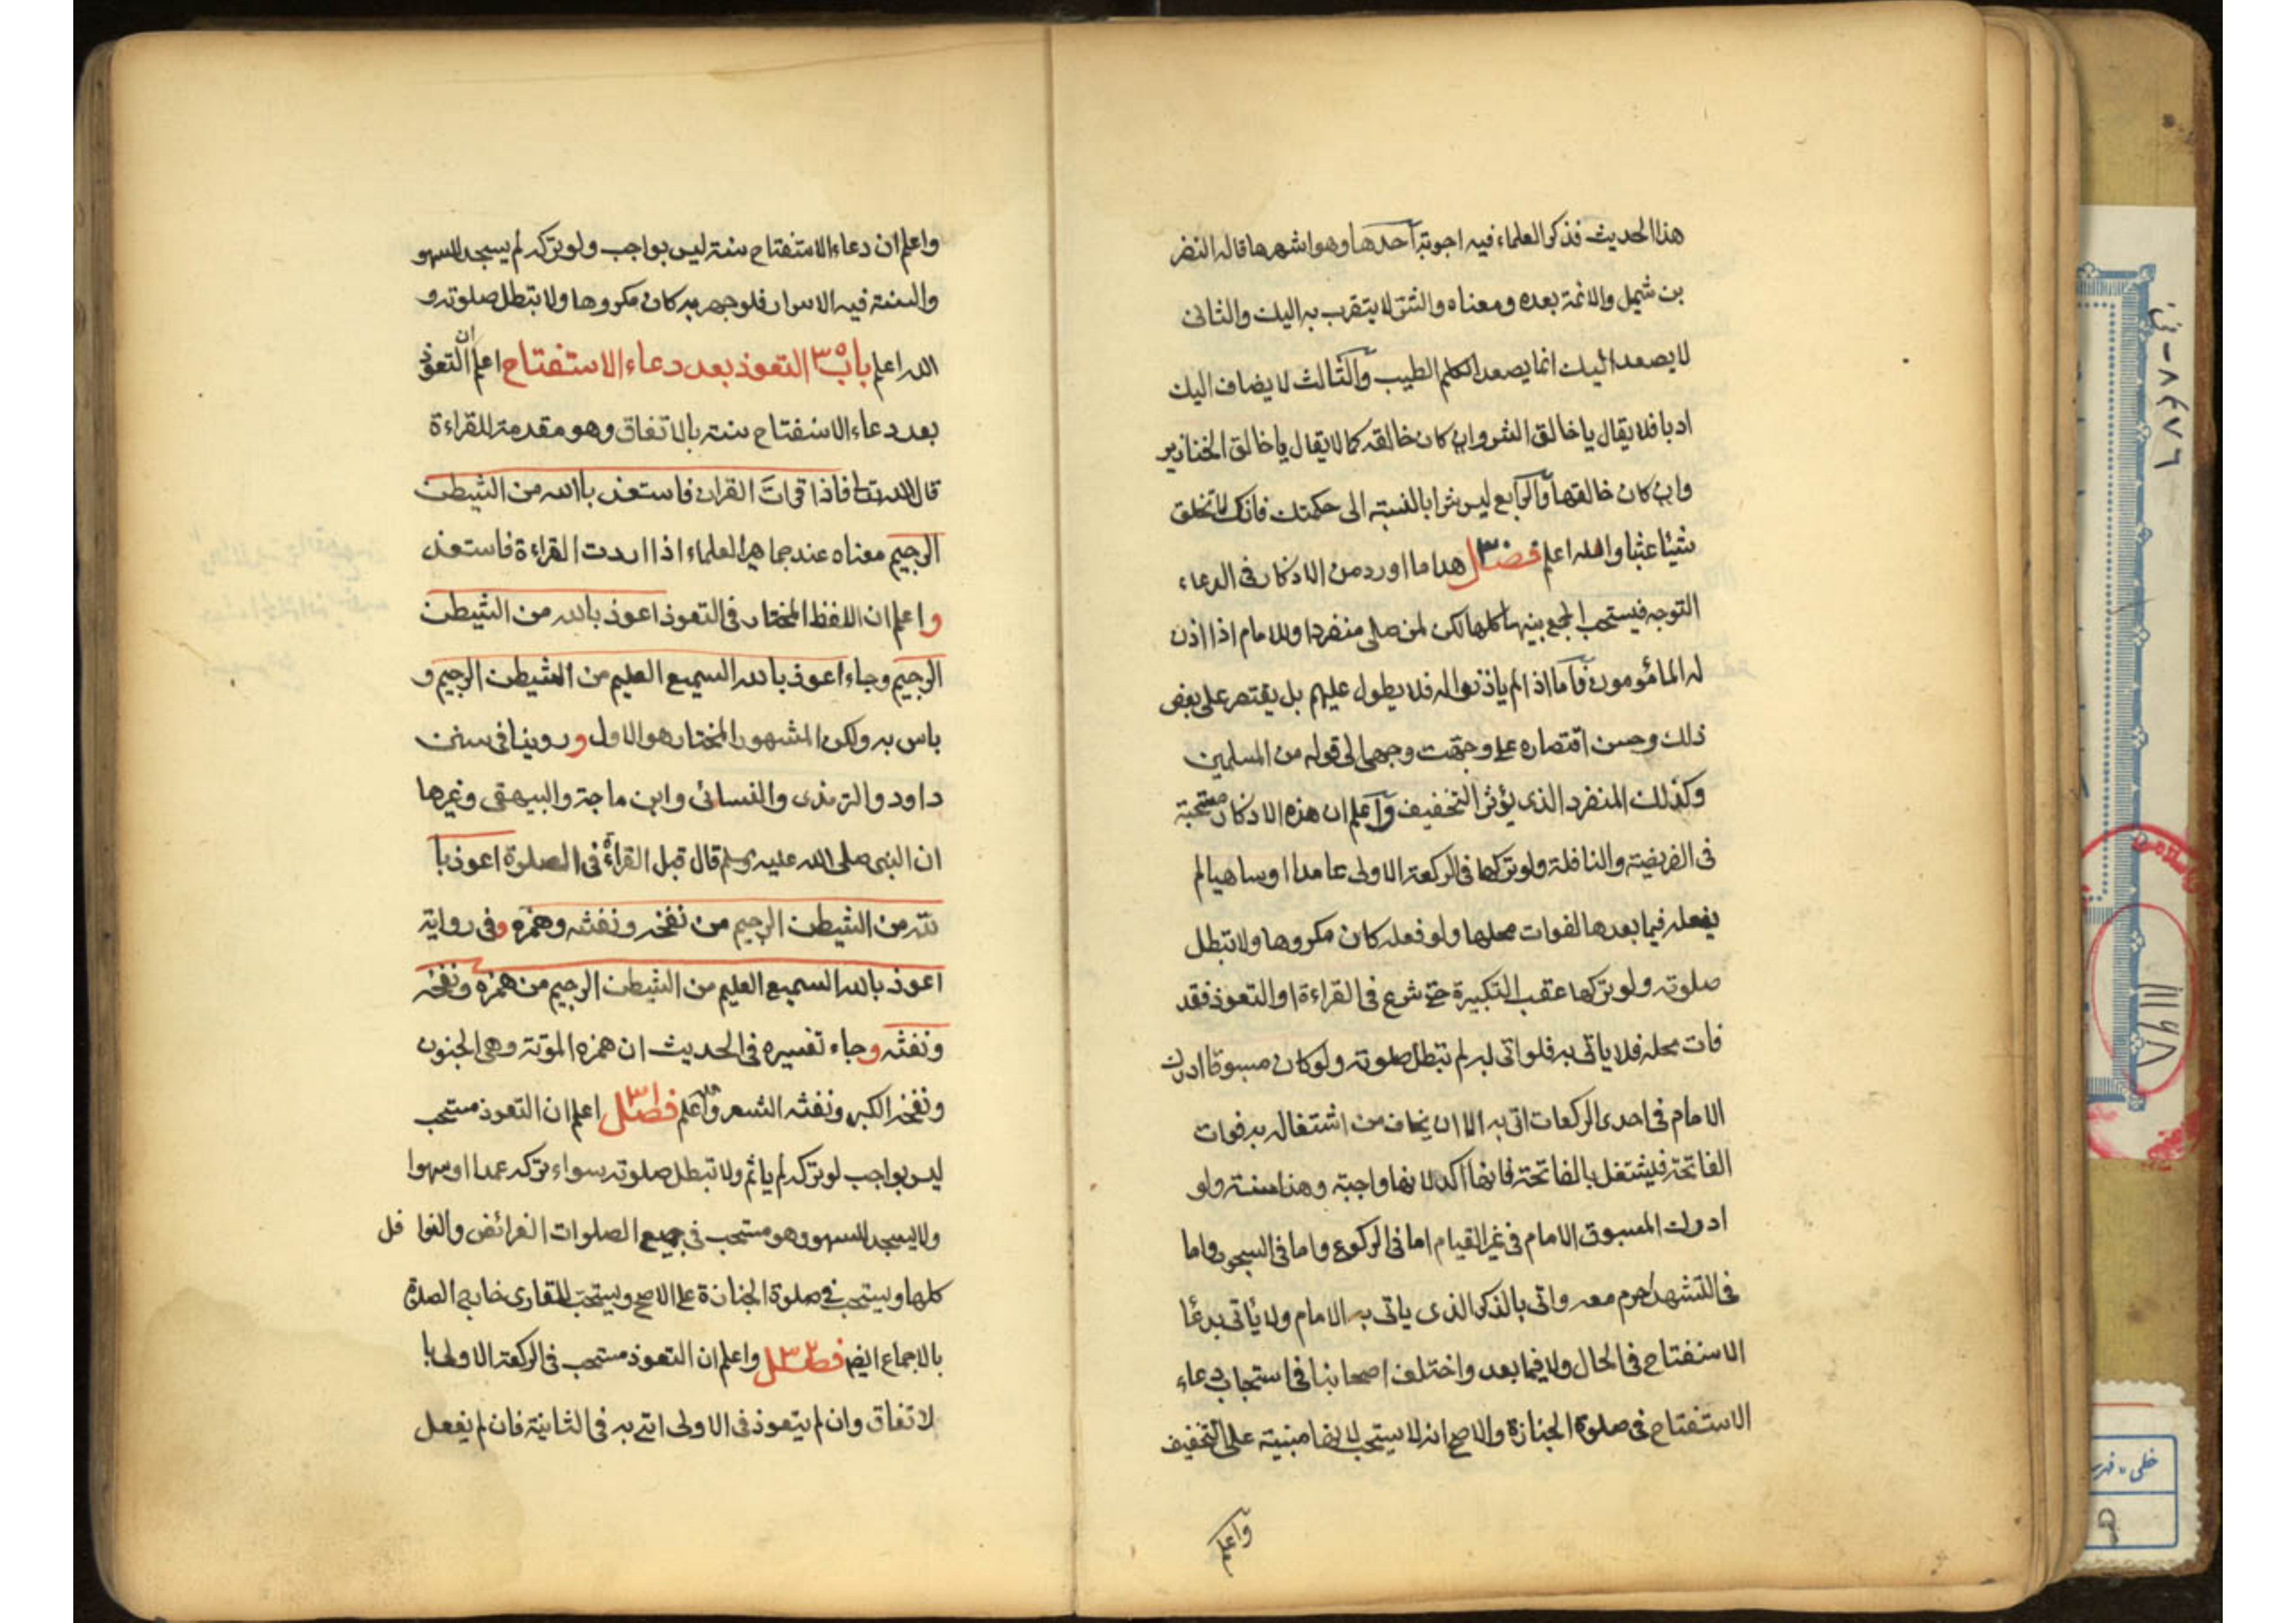 هذا الحديث فذكر العلماء فيه اجوبة آحدها وهو اشهرها قاله النضر
بن شميل والائمة بعده ومعناه والشر لا يتقرب به اليك والثانى
لا يصعد اليك انما يصعد الكلم الطيب وآلثالث لا يضاف اليك
ادبا فلا يقال يا خالق الشر وان كان خالقه كما لا يقال يا خالق الخنازير
وان كان خالقها وآلرابع ليس شرا بالنسبة الى حكمتك فانك لا تخلق
شيئا عبثا والله اعلم فصل ٣٠ هذا ما اورد من الاذكار فى الدعاء
التوجه فيستحب الجمع بينها كلها لكن لمن صلى منفردا وللامام اذا اذن
له المائومون فآما اذا لم ياذنوا له فلا يطول عليهم بل يقتصر على بعض
ذلك وحسن اقتصاره على وجهت وجهى الى قوله من المسلمين
وكذلك المنفرد الذى يؤثر التخفيف وآعلم ان هذه الاذكار مستحبة
فى الفريضة والنافلة ولو تركها فى الركعة الاولى عامدا او ساهيا لم
يفعله فيما بعدها لفوات محلها ولو فعله كان مكروها ولا تبطل
صلوته ولو تركها عقب التكبيرة حتى شرع فى القراءة او التعوذ فقد
فات محله فلا ياتى به فلو اتى به لم تبطل صلوته ولو كان مسبوقا ادرك
الامام فى احدى الركعات اتى به الا ان يخاف من اشتغاله به فوات
الفاتحة فيشتغل بالفاتحة فانها آكد لانها واجبة وهذا سنة ولو
ادرك المسبوق الامام فى غير القيام اما فى الركوع واما فى السجود واما
فى التشهد احرم معه واتى بالذكر الذى ياتى به الامام ولا يأتى بدعا
الاستفتاح فى الحال ولا فيما بعد واختلف اصحابنا فى استحباب دعاء
الاستفتاح فى صلوة الجنازة والاصح انه لا يستحب لانها مبنية على التخفيف
وآعلم
واعلم ان دعاء الاستفتاح سنة ليس بواجب ولو تركه لم يسجد للسهو
والسنة فيه الاسرار فلو جهر به كان مكروها ولا تبطل صلوته و
الله اعلم باب ٣٥ التعوذ بعد دعاء الاستفتاح اعلم ان التعوذ
بعد دعاء الاستفتاح سنة بالاتفاق وهو مقدمة للقراءة
قال الله تعا فاذا قرات القران فاستعذ باالله من الشيطن
الرجيم معناه عند جماهير العلماء اذا اردت القراءة فاستعذ
واعلم ان اللفظ المختار فى التعوذ اعوذ بالله من الشيطن
الرجيم وجاء اعوذ بالله السميع العليم من الشيطن الرجيم و
باس به ولكن المشهور المختار هو الاول وروينا فى سنن
داود والترمذى والنسائى وابن ماجة والبيهقى وغيرها
ان النبى صلى الله عليه وسلم قال قبل القراءة فى الصلوة اعوذ با
لله من الشيطن الرجيم من نفخه ونفثه وهمزه وفى رواية
اعوذ بالله السميع العليم من الشيطن الرجيم من همزه ونفخه
ونفثه وجاء تفسيره فى الحديث ان همزه الموتة وهى الجنون
ونفخه الكبر ونفثه الشعر والله اعلم فصل ٣١ اعلم ان التعوذ مستحب
ليس بواجب لو تركه لم ياثم ولا تبطل صلوته سواء تركه عمدا او سهوا
ولا يسجد للسهو وهو مستحب فى جميع الصلوات الفرائض والنوا فل
كلها ويستحب فى صلوة الجنازة على الاصح ويستحب للقارى خارج الصلوة
بالاجماع ايضا فصل ٣٢ واعلم ان التعوذ مستحب فى الركعة الاولى با
لاتفاق وان لم يتعوذ فى الاولى اتى به فى الثانية فان لم يفعل
خطى - فهرست